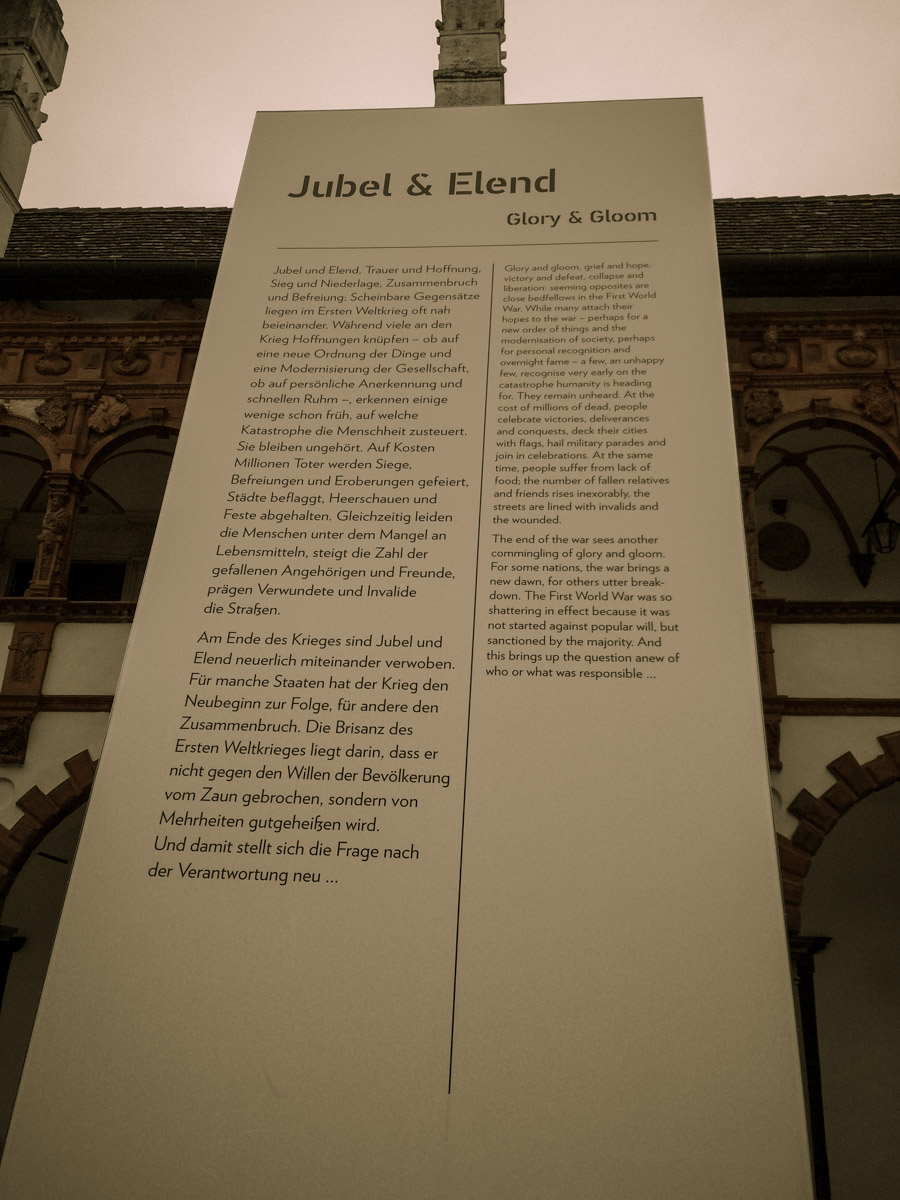 Jubel & Elend
Glory & Gloom
Jubel und Elend, Trauer und Hoffnung,
Sieg und Niederlage, Zusammenbruch
und Befreiung: Scheinbare Gegensätze
liegen im Ersten Weltkrieg oft nah
beieinander. Während viele an den
Krieg Hoffnungen knüpfen – ob auf
eine neue Ordnung der Dinge und
eine Modernisierung der Gesellschaft,
ob auf persönliche Anerkennung und
schnellen Ruhm –, erkennen einige
wenige schon früh, auf welche
Katastrophe die Menschheit zusteuert.
Sie bleiben ungehört. Auf Kosten
Millionen Toter werden Siege,
Befreiungen und Eroberungen gefeiert,
Städte beflaggt, Heerschauen und
Feste abgehalten. Gleichzeitig leiden
die Menschen unter dem Mangel an
Lebensmitteln, steigt die Zahl der
gefallenen Angehörigen und Freunde,
prägen Verwundete und Invalide
die Straßen.
Am Ende des Krieges sind Jubel und
Elend neuerlich miteinander verwoben.
Für manche Staaten hat der Krieg den
Neubeginn zur Folge, für andere den
Zusammenbruch. Die Brisanz des
Ersten Weltkrieges liegt darin, dass er
nicht gegen den Willen der Bevölkerung
vom Zaun gebrochen, sondern von
Mehrheiten gutgeheißen wird.
Und damit stellt sich die Frage nach
der Verantwortung neu ...
Glory and gloom, grief and hope,
victory and defeat, collapse and
liberation: seeming opposites are
close bedfellows in the First World
War. While many attach their
hopes to the war – perhaps for a
new order of things and the
modernisation of society, perhaps
for personal recognition and
overnight fame – a few, an unhappy
few, recognise very early on the
catastrophe humanity is heading
for. They remain unheard. At the
cost of millions of dead, people
celebrate victories, deliverances
and conquests, deck their cities
with flags, hail military parades and
join in celebrations. At the same
time, people suffer from lack of
food; the number of fallen relatives
and friends rises inexorably, the
streets are lined with invalids and
the wounded.
The end of the war sees another
commingling of glory and gloom.
For some nations, the war brings a
new dawn, for others utter break-
down. The First World War was so
shattering in effect because it was
not started against popular will, but
sanctioned by the majority. And
this brings up the question anew of
who or what was responsible ...